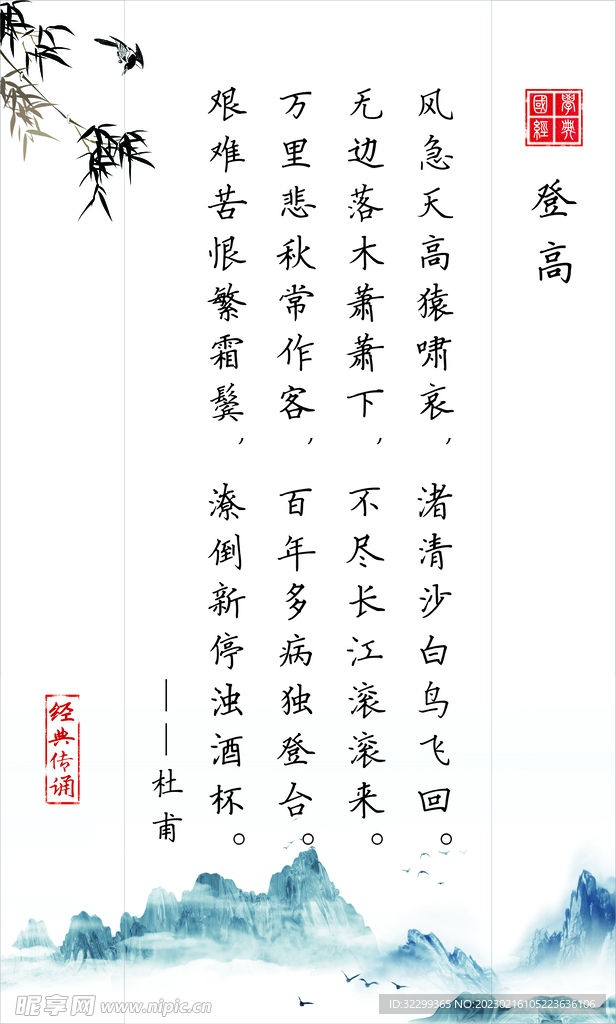 國學經典
登高
风急天高猿啸哀，渚清沙白鸟飞回。
无边落木萧萧下，不尽长江滚滚来。
万里悲秋常作客，百年多病独登台。
艰难苦恨繁霜鬓，潦倒新停浊酒杯。
——杜甫
经典传诵
昵享网 www.nipic.cn
ID:32299365 NO:20230216105223636106